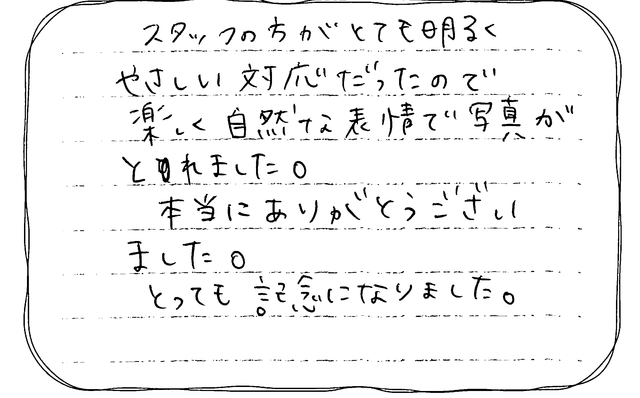 スタッフの方がとても明るく
やさしい対応だったので
楽しく自然な表情で写真が
とれました。
本当にありがとうござい
ました。
とっても記念になりました。